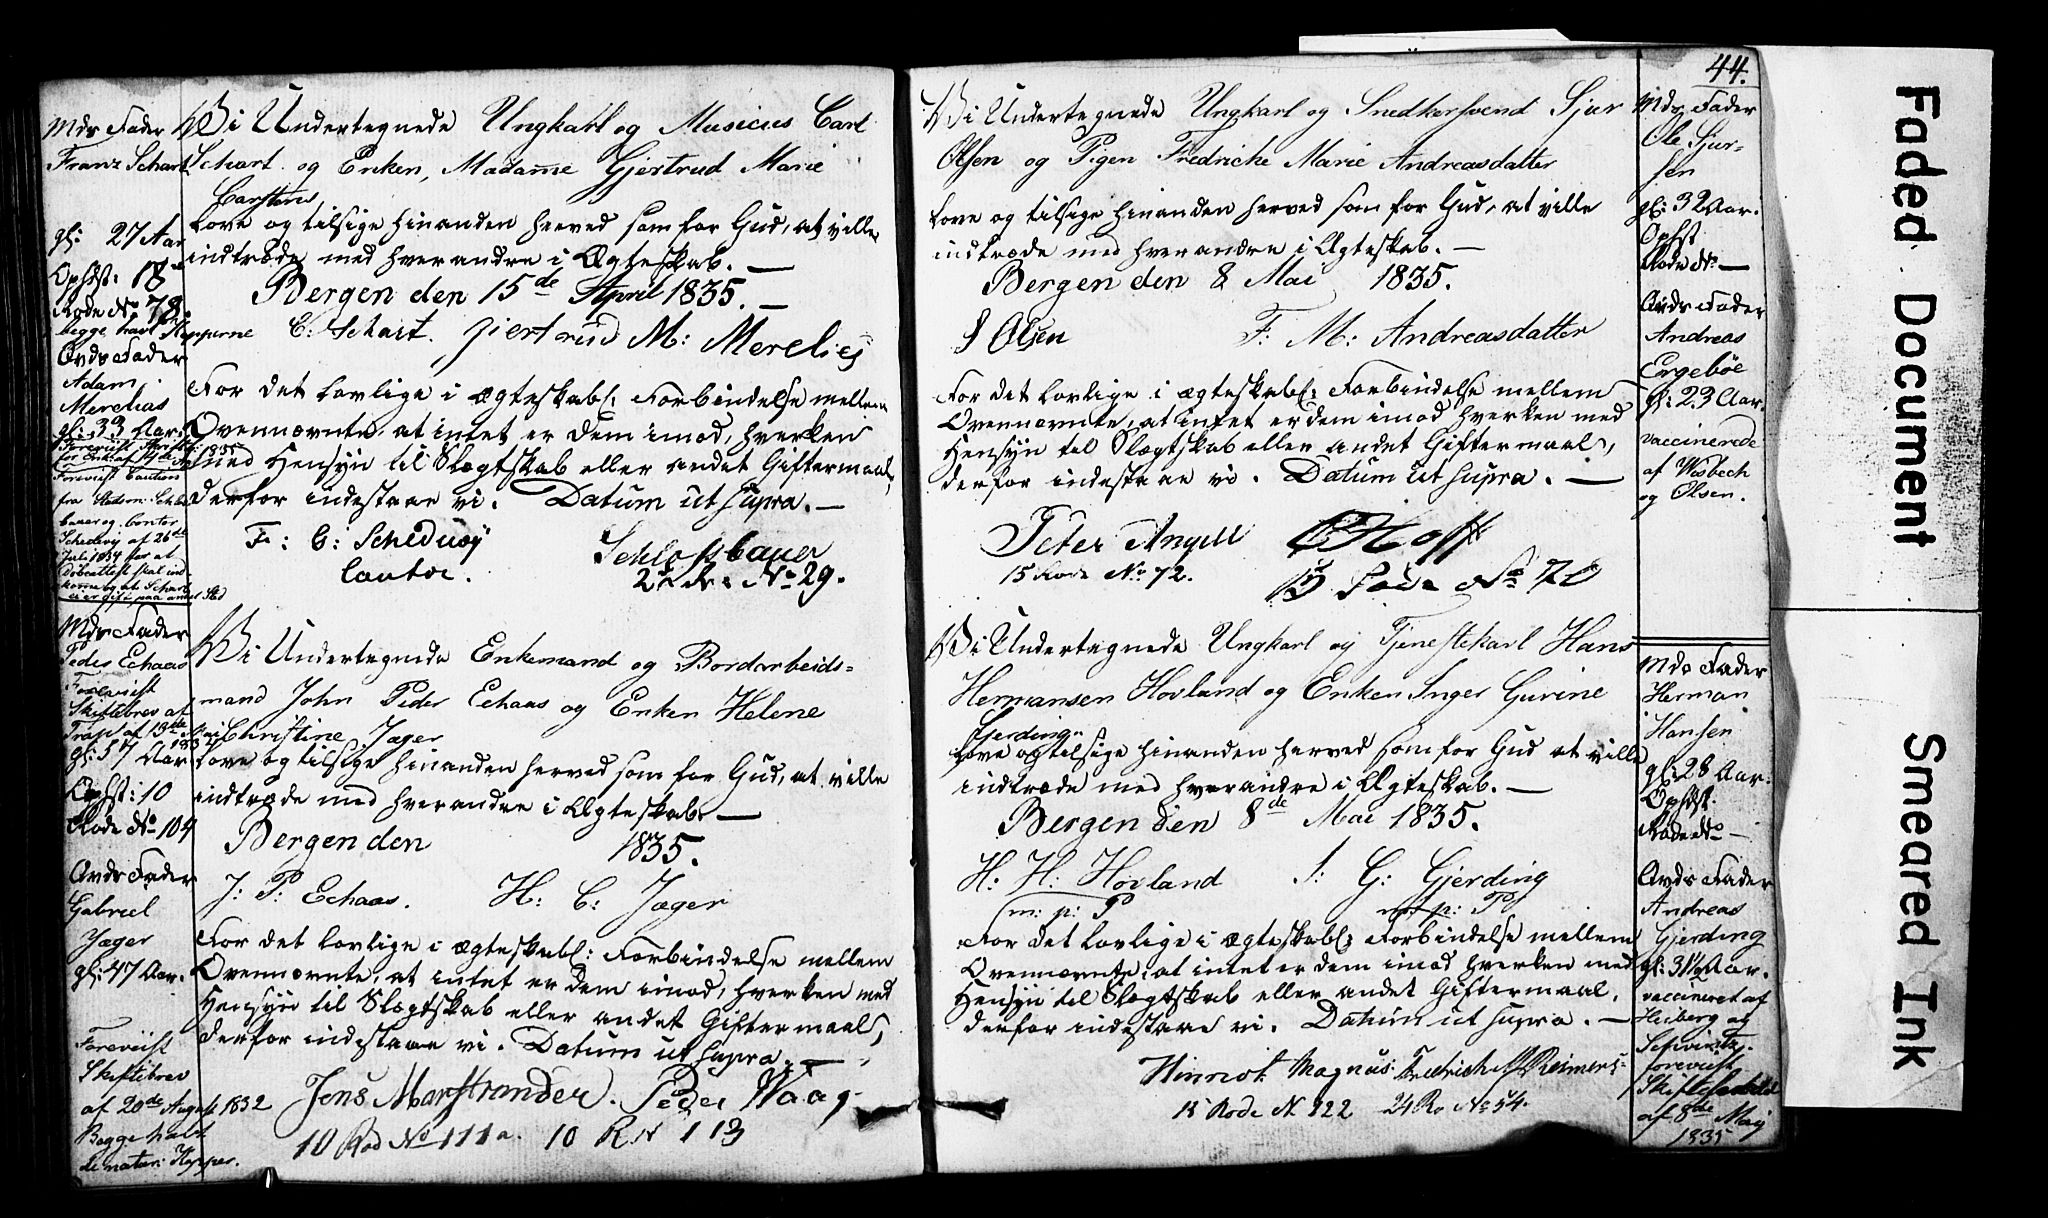 Mds Fader
Franz Schart
gl: 27 Aar
Ophst: 18
Rode No 78.
begge havt Kopperne
Brds Fader
Adam
Merelias
gl: 33 Aar.
Foreviist Caution
fra Sledm: Schlos
bauer og Cantor
Scheduvy af 26de
Juli 1834 for at
Døbeattest skal ind
komme og at Schart
ei er gift paa andet Sted
Vi Undertegnede Ungkarl og Musicus Carl
Schart og Enken, Madame Gjertrud Marie
Carstens
Love og tilsige hinanden herved som for Gud, at ville
indtræde med hverandre i Ægteskab. —
Bergen den 15de April 1835. —
C: Schart. Giertrud M: Merelies
For det lovlige i ægteskabl: Forbindelse mellem
Ovennævnte, at intet er dem imod, hverken
med Hensyn til Slægtskab eller andet Giftermaal,
derfor indestaae vi. Datum ut supra. —
F: C: Scheduvy Schlossbauer
Cantor. 2de R: No 29.
Mds Fader
Peder Echaas
Foreviist
Skiftebrev af
Trap af 13de Mai
1835
gl: 57 Aar
Ophst: 10
Rode No 104
Brds Fader
Gabriel
Jæger
gl: 47 Aar.
Foreviist
Skiftebrev
af 20de August 1832
Begge havt
de natur: Kopper.
Vi Undertegnede Enkemand og Bordarbeids=
mand John Peder Echaas og Enken Helene
Christine Jæger
Love og tilsige hinanden herved som for Gud, at ville
indtræde med hverandre i Ægteskab —
Bergen den 1835.
J: P: Echaas. H: C: Jæger
For det lovlige i ægteskabl: Forbindelse mellem
Ovennævnte, at intet er dem imod, hverken med
Hensyn til Slægtskab eller andet Giftermaal,
derfor indestaae vi. Datum ut supra. —
Jens Marstrander. Peder Waag
10 Rod No 111a. 10 R N 113
44.
Vi Undertegnede Ungkarl og Snedkersvend Sjur
Olsen og Pigen Fredricke Marie Andreasdatter
Love og tilsige hinanden herved som for Gud, at ville
indtræde med hverandre i Ægteskab. —
Bergen den 8 Mai 1835.
S Olsen F: M: Andreasdatter
For det lovlige i ægteskabl: Forbindelse mellem
Ovennævnte, at intet er dem imod hverken med
Hensyn til Slægtskab eller andet Giftermaal,
derfor indestaae vi. Datum ut supra. —
Peter Angell CHoff
15 Rode No 72. 15 Rode No 70
Mds Fader
Ole Sjur-
sen
gl: 32 Aar.
Ophst
Rode No —
Brds Fader
Andreas
Ergebøe
gl: 23 Aar.
vaccinerede
af Wisbech
og Olsen.
Vi Undertegnede Ungkarl og Tjenestekarl Hans
Hermansen Hovland og Enken Inger Gurine
Gjerding
Love og tilsige hinanden herved som for Gud at ville
indtræde med hverandre i Ægteskab. —
Bergen den 8de Mai 1835.
H: H: Hovland I: G: Gjerding
m: p: P m: p: P
For det lovlige i ægteskabl: Forbindelse mellem
Ovennævnte, at intet er dem imod hverken med
Hensyn til Slægtskab eller andet Giftermaal,
derfor indestaae vi. Datum ut supra. —
Hinrich Magnus: Fredrich Reimers
15 Rode N 122 24 Ro No 54.
Mds Fader
Herman
Hansen
gl: 28 Aar.
Ophst.
Rode No —
Brds Fader
Andreas
Gjerding
gl: 31½ Aar.
vaccineret af
Heiberg og
foreviist
af 8de Maj
1835
Faded Document
Smeared Ink